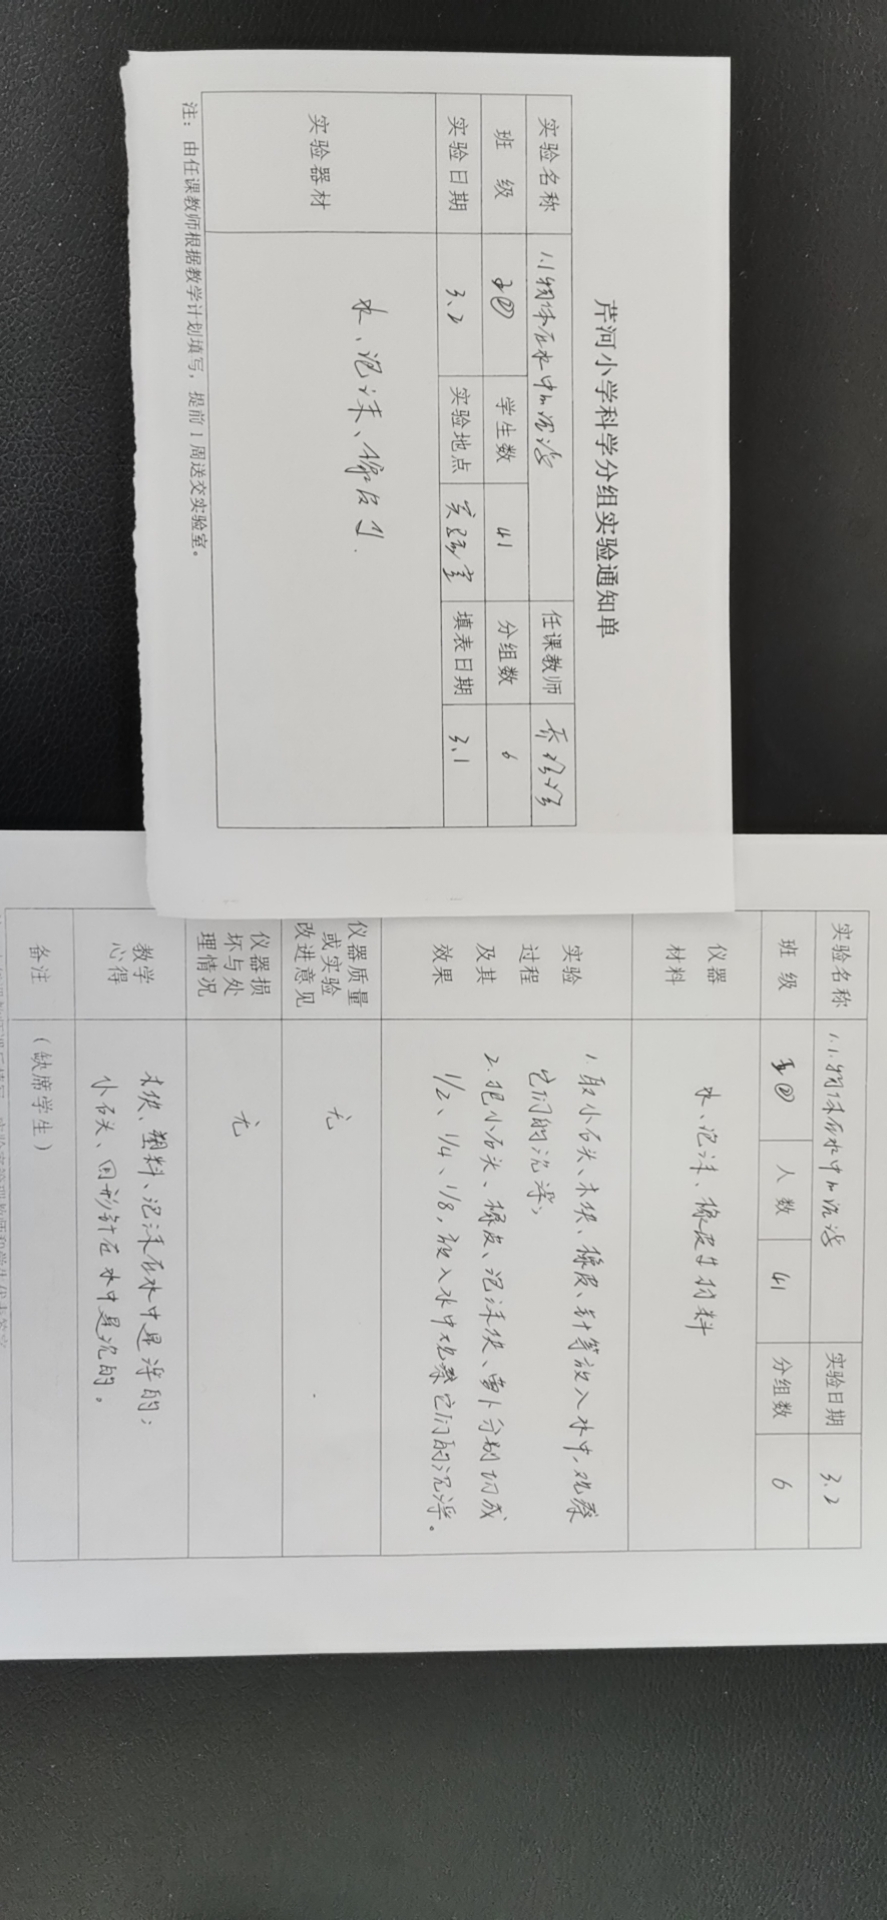 芹河小学科学分组实验通知单
实验名称 1.1物体在水中的沉浮 任课教师
班 级 ② 学生数 41 分组数 6
实验日期 3.2 实验地点 实验室 填表日期 3.1
实验器材 水、泡沫、橡皮
注：由任课教师根据教学计划填写，提前1周送交实验室。
实验名称 1.1.物体在水中的沉浮 实验日期 3.2
班 级 ② 人数 41 分组数 6
仪器
材料
水、泡沫、橡皮等材料
实验
过程
及其
效果
1.取小石头、木块、橡皮、针等放入水中，观察
它们的沉浮；
2.把小石头、橡皮、泡沫块、萝卜分别切成
1/2、1/4、1/8，放入水中观察它们的沉浮。
仪器质量
或实验
改进意见
无
仪器损
坏与处
理情况
无
教学
心得
木块、塑料、泡沫在水中是浮的；
小石头、回形针在水中是沉的。
备注 （缺席学生）